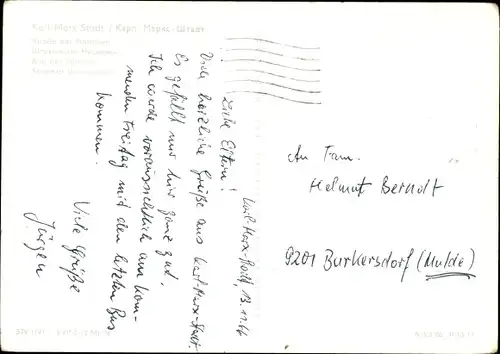 Karl-Marx-Stadt / Карл-Маркс-Штадт
Karl-Marx-Stadt, 13.11.66
Liebe Eltern!
Viele herzliche Grüße aus Karl-Marx-Stadt.
Es gefällt mir hier ganz gut.
Ich werde voraussichtlich am kom-
menden Freitag mit dem letzten Bus
kommen.
Viele Grüße
Jürgen
An Fam.
Helmut Berndt
9201 Burkersdorf (Mulde)